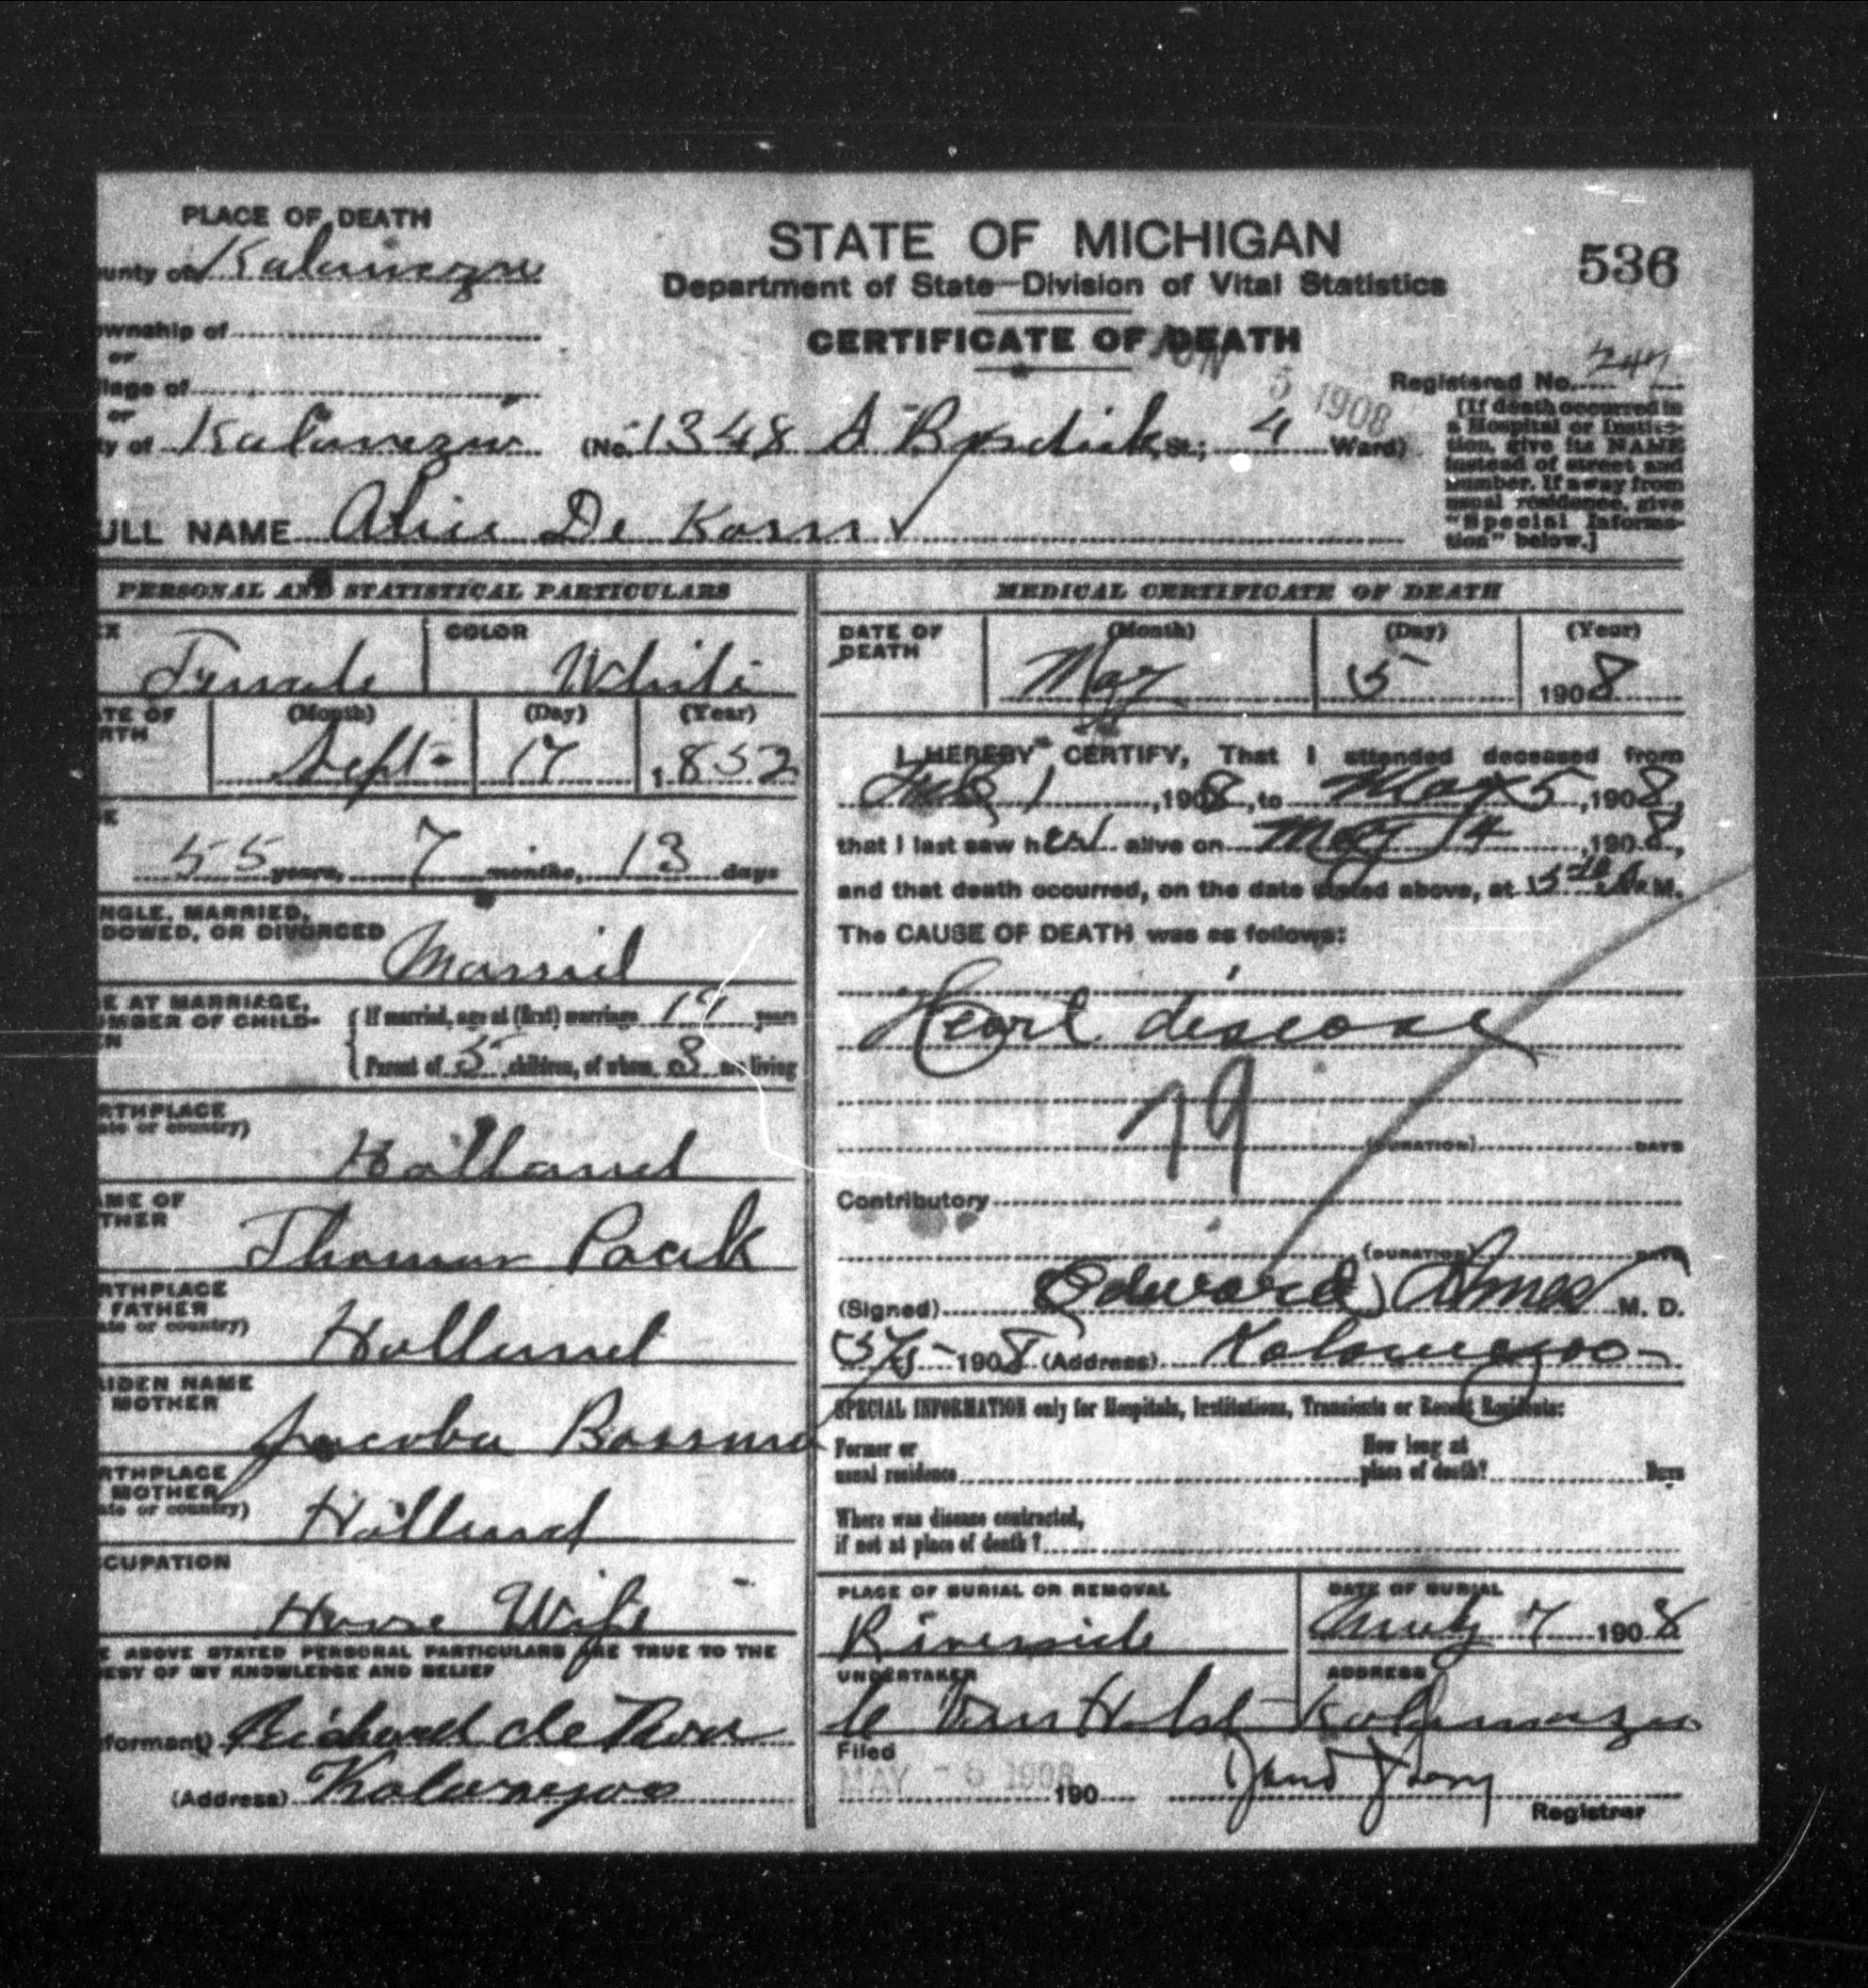 PLACE OF DEATH
unty of Kalamazoo
STATE OF MICHIGAN
536
Department of State—Division of Vital Statistics
wnship of
or
CERTIFICATE OF DEATH
JUN 5 1908
llage of
or
Registered No. 247
ty of Kalamazoo (No. 1348 S Burdick St.; 4 Ward)
[If death occurred in
a Hospital or Institu-
tion, give its NAME
instead of street and
number. If away from
usual residence, give
"Special Informa-
tion" below.]
ULL NAME Alice De Korn
PERSONAL AND STATISTICAL PARTICULARS
X Female COLOR White
TE OF
RTH
(Month) (Day) (Year)
Sept- 17 1852
E
55 years, 7 months, 13 days
NGLE, MARRIED,
DOWED, OR DIVORCED
Married
E AT MARRIAGE,
MBER OF CHILD-
N
If married, age at (first) marriage 19 years
Parent of 5 children, of whom 3 are living
RTHPLACE
ate or country)
Holland
ME OF
THER
Thomas Paak
RTHPLACE
FATHER
ate or country)
Holland
IDEN NAME
MOTHER
Jacoba
RTHPLACE
MOTHER
ate or country)
Holland
CUPATION
House Wife
E ABOVE STATED PERSONAL PARTICULARS ARE TRUE TO THE
EST OF MY KNOWLEDGE AND BELIEF
formant) Richard de
(Address) Kalamazoo
MEDICAL CERTIFICATE OF DEATH
DATE OF
DEATH
(Month) (Day) (Year)
May 5 1908
I HEREBY CERTIFY, That I attended deceased from
Feb 1, 1908, to May 5, 1908,
that I last saw her alive on May 4, 1908,
and that death occurred, on the date stated above, at 5 A M.
The CAUSE OF DEATH was as follows:
Heart disease
79
(DURATION) DAYS
Contributory
(DURATION) DAYS
(Signed) Edward Ames M. D.
5/5- 1908 (Address) Kalamazoo
SPECIAL INFORMATION only for Hospitals, Institutions, Transients or Recent Residents:
Former or
usual residence
How long at
place of death? Days
Where was disease contracted,
if not at place of death?
PLACE OF BURIAL OR REMOVAL
Riverside
DATE OF BURIAL
May 7 1908
UNDERTAKER
Van Holst
ADDRESS
Kalamazoo
Filed
MAY - 6 1908 190
Registrar